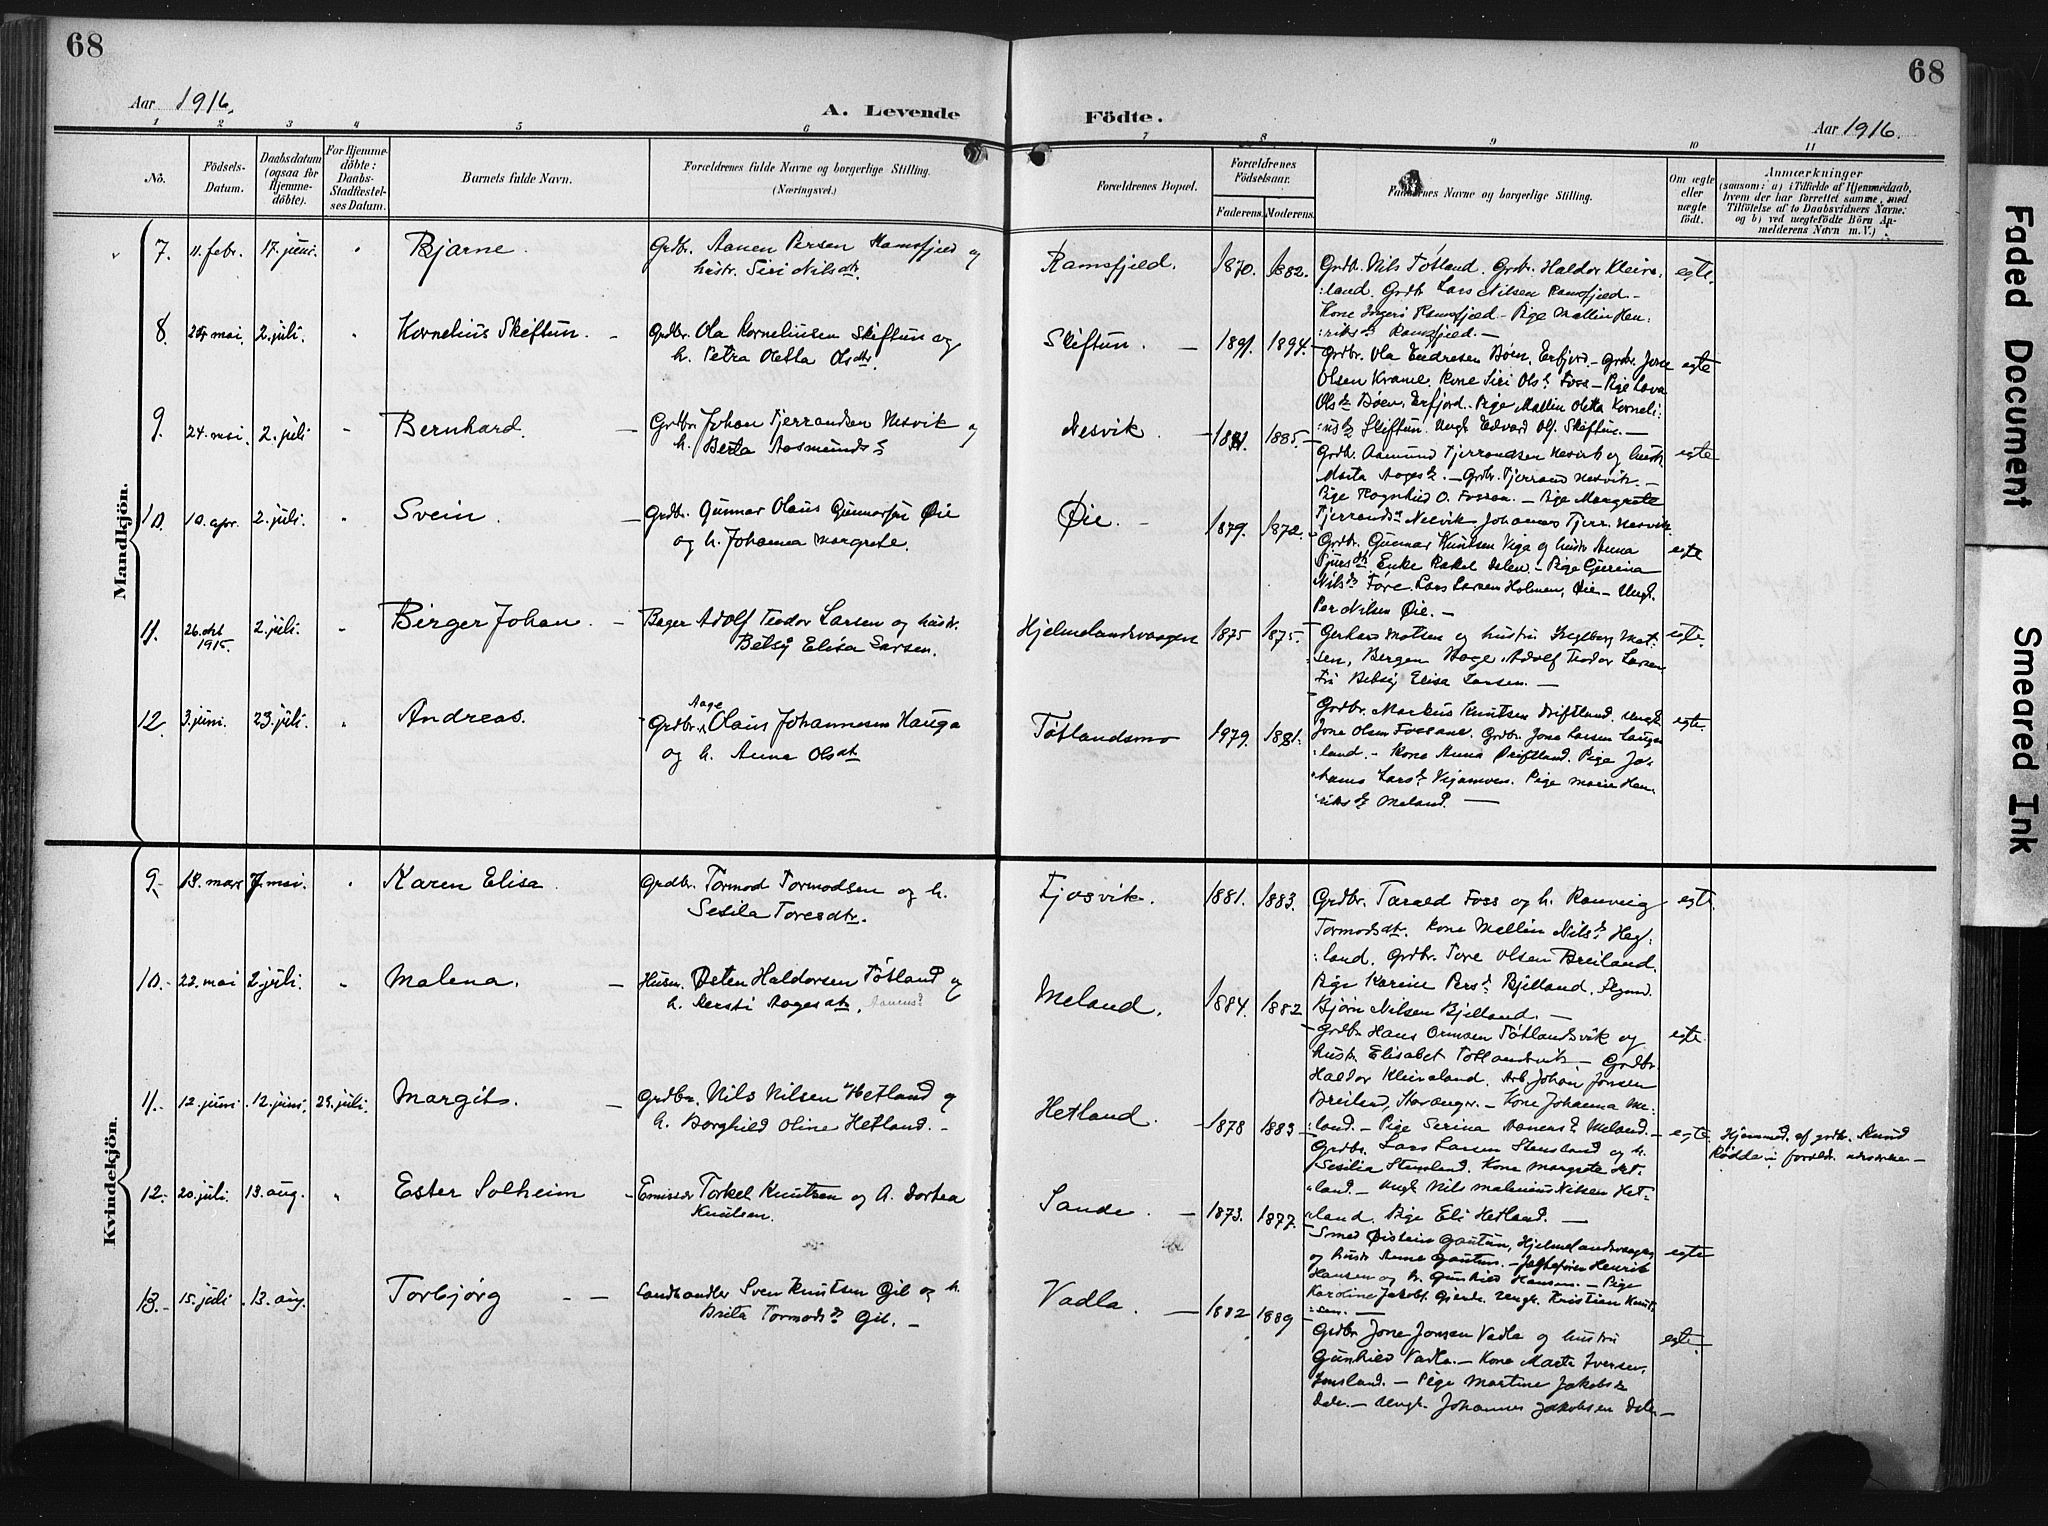 68
68
Aar 1916.
A. Levende
Födte.
Aar 1916.
1 2 3 4 5 6 7 8 9 10 11
No.
Födsels-Datum.
Daabsdatum (ogsaa for Hjemmedöbte).
For Hjemmedöbte: Daabs-Stadfæstelses Datum.
Barnets fulde Navn.
Forældrenes fulde Navne og borgerlige Stilling. (Næringsvei.)
Forældrenes Bopæl.
Forældrenes Födselsaar.
Faderens. Moderens.
Faddernes Navne og borgerlige Stilling.
Om ægte eller uægte födt.
Anmærkninger
(saasom: a) i Tilfælde af Hjemmedaab, hvem der har forrettet samme, med Tilföielse af to Daabsvidners Navne; og b) ved uægtefödte Börn Anmelderens Navn m. V.)
Mandkjön.
7. 11. febr. 17. juni. Bjarne.
Grdbr. Aanen Persen Ramsfjeld og
hustr. Siri Nilsdtr.
Ramsfjeld. 1870. 1882.
Grdbr. Nils Tøtland. Grdbr. Haldor Kleive-
land. Grdb. Lars Nilsen Ramsfjeld -
Kone Ingeri Ramsfjeld - Pige Mallin Hen-
riksd. Ramsfjeld. -
egte.
8. 2. juli. Kornelius Skiftun.
Grdbr. Ola Korneliusen Skiftun og
h. Petra Oletta Olsdtr.
Skiftun. 1891. 1894.
Grdbr. Ola Endresen Bøen, Erfjord - Grdbr. Jone
Olsen Krame. Kone Siri Olsd. Foss - Pige
Olsd. Bøen, Erfjord. Pige Mallin Oletta Korneli-
usd. Skiftun. Ungk. Edvard Ols. Skiftun. -
egte
9. 24. mai. 2. juli Bernhard.
Grdbr. Johan Tjerrandsen Nesvik og
h. Berta Aasmundsd.
Nesvik. 1881. 1885.
Grdbr. Aasmund Tjerrandsen Nesvik og hustr.
Marta Aagesd. - Grdbr. Tjerrand Nesvik. -
Pige Ragnhild O. Fossan. - Pige Margrete
Tjerrandsd. Nesvik Johannes Tjerr. Nesvik
egte
10. 10. apr. 2. juli. Svein.
Grdbr. Gunnar Olaus Gunnarsen Øie
og h. Johanna Margrete.
Øie. 1879. 1872.
Grdbr. Gunnar Knutsen Viga og hustr. Anna
Sjursdtr. Enke Rakel Dalen - Pige Gurina
Nilsd. Føre. Lars Larsen Holmen, Øie - Ungk.
Per Nilsen Øie. -
egte
11. 26. okt 1915. 2. juli. Birger Johan.
Bager Adolf Teodor Larsen og hustr.
Betsy Elisa Larsen.
Hjelmelandsvaagen 1875 1875.
Gerhard Matsen og hustru Ingeborg Mat-
sen, Bergen Bager Adolf Teodor Larsen
Fru Betsy Elisa Larsen. -
egte.
12. 3. juni. 23. juli. Andreas.
Aage
Grdbr. Olaus Johannesen Hauga
og h. Anna Olsdtr
Tøtlandsmo 1979. 1881.
Grdbr. Markus Knutsen Driftland. Ungk.
Jone Olsen Fossane. Grdbr. Jone Larsen Lauge-
land. - Kone Anna Driftland. Pige Jo-
hanna Larsd. Pige Marie Hen-
riksd. Meland. -
egte.
Kvindekjön.
9. 18. mars 7. mai. Karen Elisa.
Grdbr. Tormod Tormodsen og h.
Sesila Toresdtr.
Fjosvik. 1881. 1883.
Grdbr. Tarald Foss og h. Ranveig
Tormodsdtr. Kone Mallin Nilsd. Heg-
land. Grdbr. Tore Olsen Breiland.
Pige Karine Persd. Bjelland.
Bjørn Nilsen Bjelland. -
egte.
10. 22. mai 2. juli. Malena.
Husm. Østen Haldorsen Tøtland og
h. Kersti Aagesdtr. Aanens?
Meland. 1884. 1882
Grdbr. Hans Ormsen Tøtlandsvik og
hustr. Elisabet Tøtlandsvik - Grdbr.
Haldor Kleiveland. Arb. Johan Jonsen
Breiland, Stavanger. - Kone Johanna Me-
land. - Pige Serina Aanensd. Meland. -
egte.
11. 12. juni 12. juni. 23. juli. Margit.
Grdbr. Nils Nilsen Hetland og
h. Borghild Oline Hetland. -
Hetland. 1878 1883
Grdbr. Lars Larsen Stensland og h.
Sesilia Stensland. Kone Margrete Het-
land. - Ungk. Nils Malenius Nilsen Het-
land. Pige Eli Hetland. -
egte. Hjemmed. af grdbr. Knud
Rødde i foreldr. nærværelse -
12. 20. juli. 13. aug. Ester Solheim
Emissær Torkel Knutsen og h. Dortea
Knutsen.
Sande. 1873. 1877.
Smed Øistein Gautun, Hjelmelandsvaagen
og hustr. Anna Gautun. - Jagtefører Henrik
Hansen og h. Gunhild Hansen. - Pige
Karoline Jakobs. Gjerde. Ungk. Kristian Knut-
sen. -
egte
13. 15. juli 13. aug. Torbjørg
Landhandler Sven Knutsen Gil og h.
Brita Tormodsd. Gil. -
Vadla. 1882 1889
Grdbr. Jone Jonsen Vadla og hustru
Gunhild Vadla. - Kone Marta Iversen,
Jonsland. - Pige Martine Jakobsd.
Dale. - Ungk. Johannes Jakobsen Dale -
egte.
Faded Document
Smeared Ink